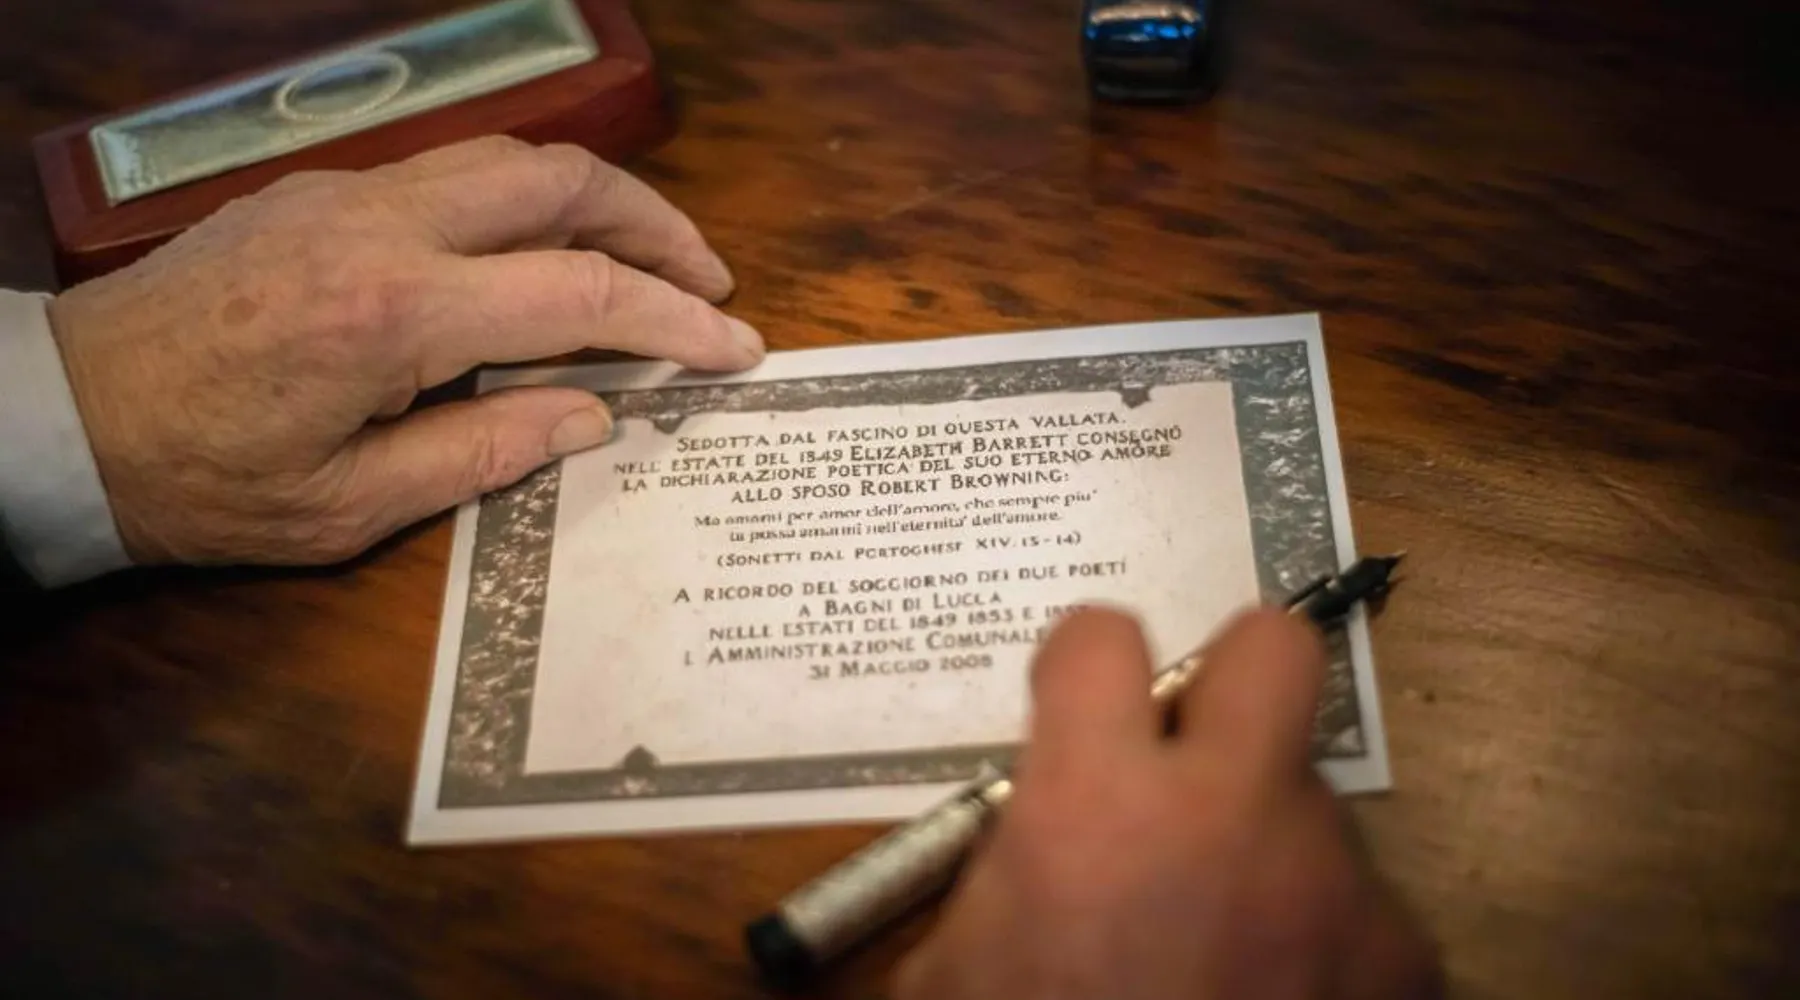 SEDOTTA DAL FASCINO DI QUESTA VALLATA,
NELL' ESTATE DEL 1849 ELIZABETH BARRETT CONSEGNÓ
LA DICHIARAZIONE POETICA DEL SUO ETERNO AMORE
ALLO SPOSO ROBERT BROWNING:
Ma amami per amor dell'amore, che sempre piu'
tu possa amarmi nell'eternita' dell'amore.
(SONETTI DAL PORTOGHESE XIV. 13-14)
A RICORDO DEL SOGGIORNO DEI DUE POETI
A BAGNI DI LUCCA
NELLE ESTATI DEL 1849 1853 E
L'AMMINISTRAZIONE COMUNALE
31 MAGGIO 2008